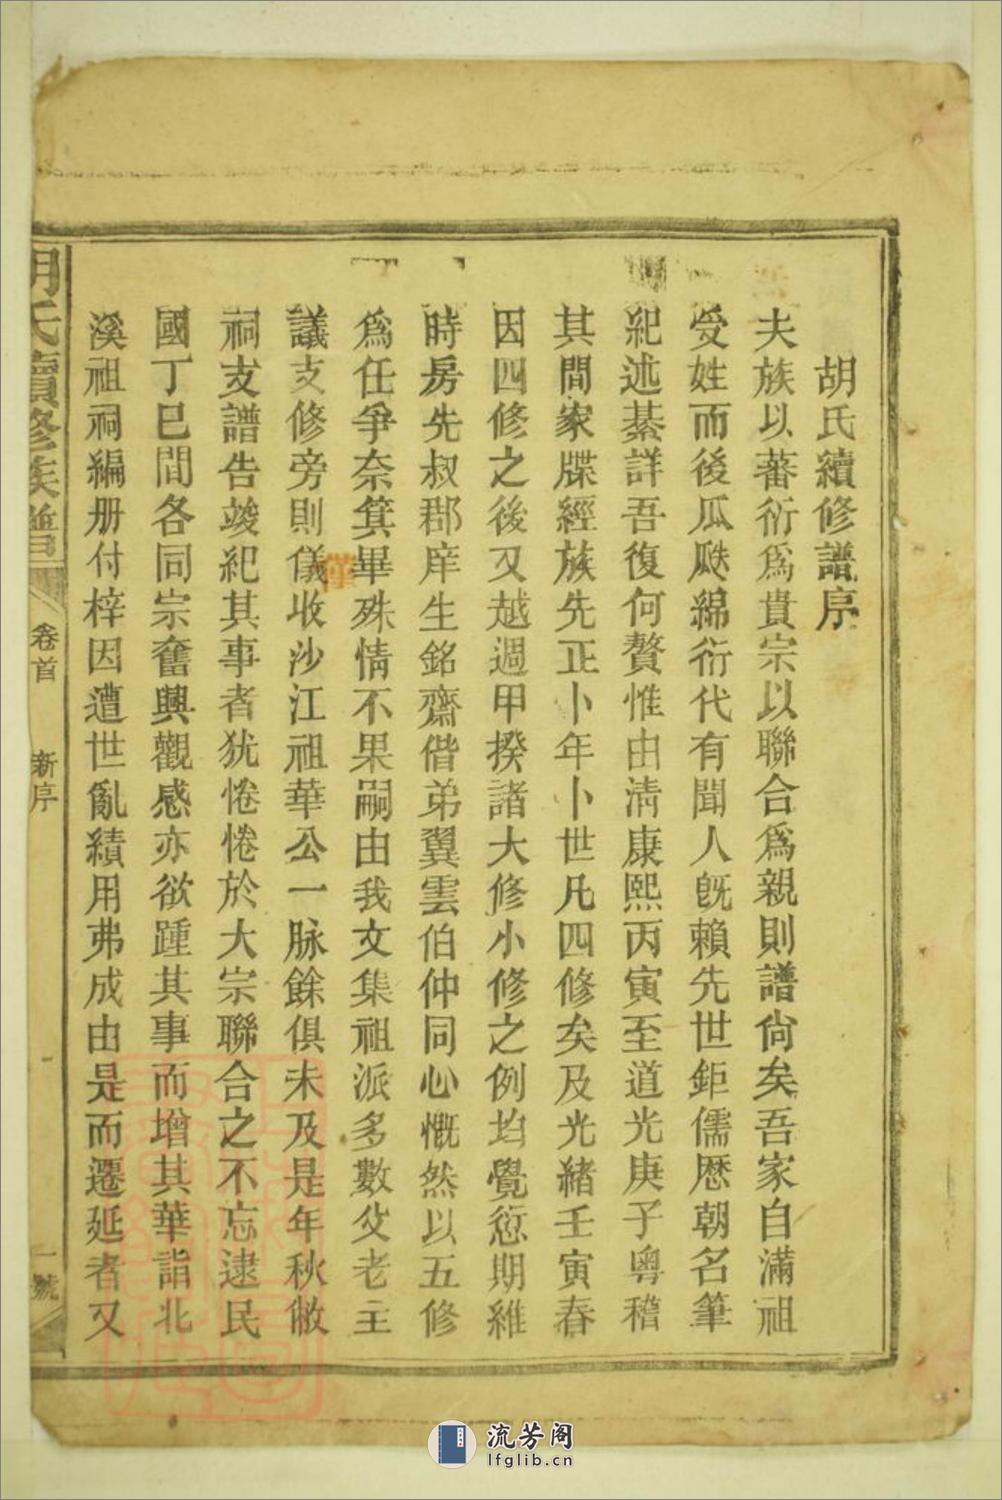 胡氏續修譜序
夫族以蕃衍爲貴宗以聯合爲親則譜尙矣吾家自滿祖
受姓而後瓜瓞綿衍代有聞人旣賴先世鉅儒歷朝名筆
紀述綦詳吾復何贅惟由淸康熙丙寅至道光庚子粵稽
其間家牒經族先正卜年卜世凡四修矣及光緖壬寅春
因四修之後又越週甲揆諸大修小修之例均覺愆期維
時房先叔郡庠生銘齋偕弟翼雲伯仲同心慨然以五修
爲任爭奈箕畢殊情不果嗣由我文集祖派多數父老主
議支修旁則儀收沙江祖華公一脉餘俱未及是年秋敝
祠支譜告竣紀其事者犹惓惓於大宗聯合之不忘逮民
國丁巳間各同宗奮興觀感亦欲踵其事而增其華詣北
溪祖祠編册付梓因遭世亂績用弗成由是而遷延者又
胡氏續修族譜
卷首
新序
一號
流芳阁
lfglib.cn